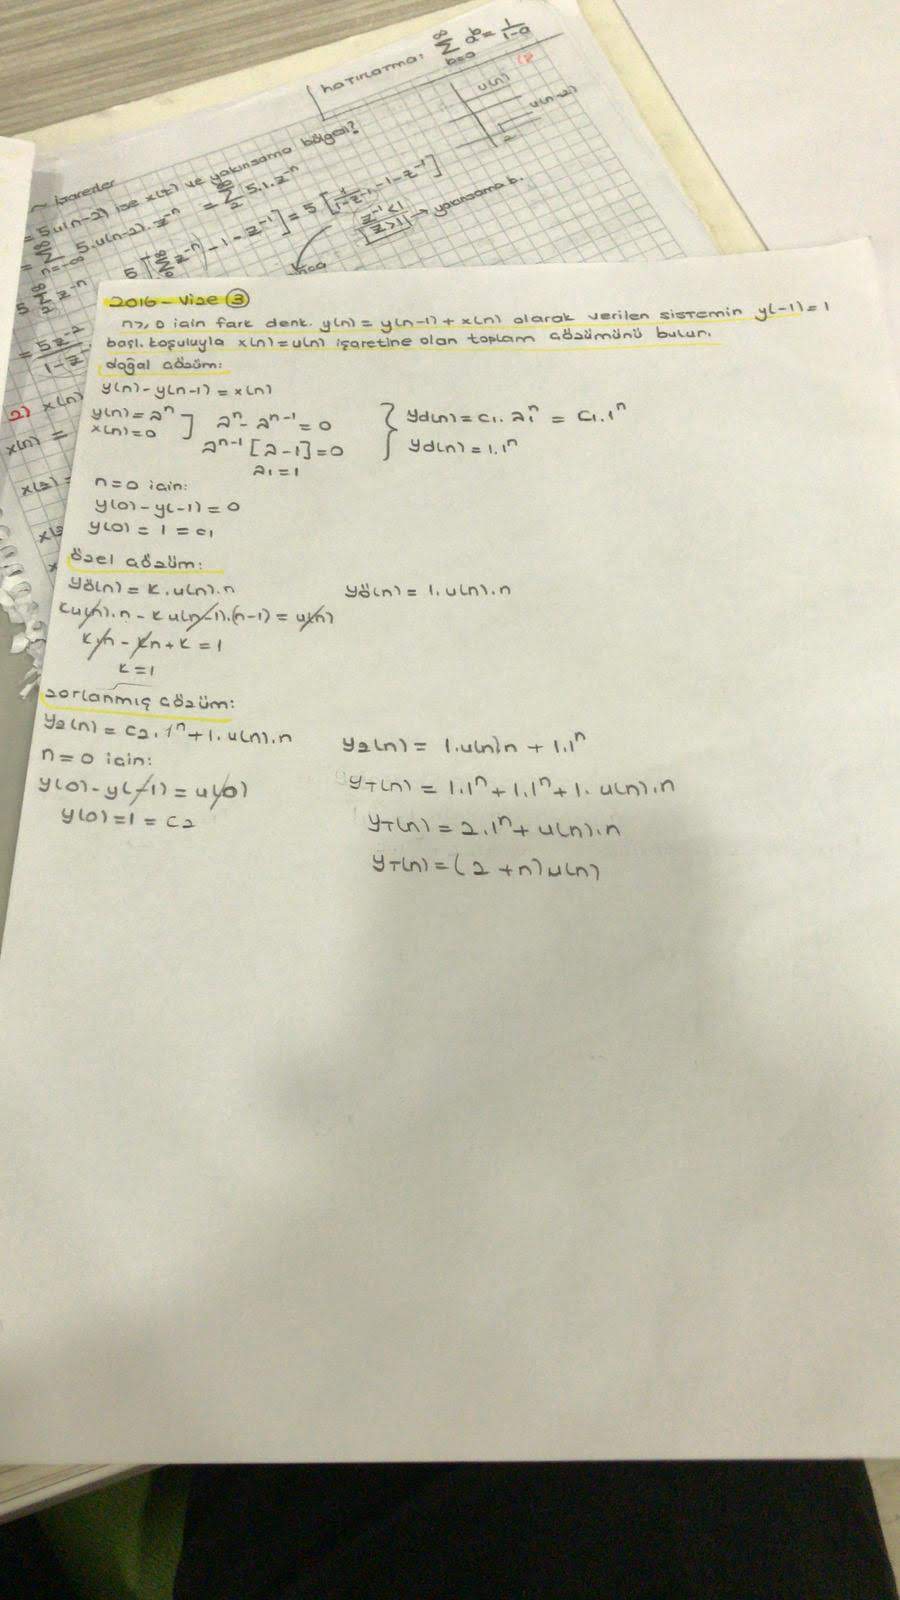 hatırlatma: ∞ Σ b=0 a^b = 1/(1-a)
u(n)
u(n-2)
2
~ İşaretler
= 5u(n-2) ise x(z) ve yakınsama bölgesi?
= ∞ Σ n=-∞ 5.u(n-2).z^-n = ∞ Σ 2 5.1.z^-n
5 ∞ Σ 2 z^-n 5[(∞ Σ 0 z^-n) - 1 - z^-1] = 5[1/(1-z^-1) - 1 - z^-1]
z^-1 < 1
z > 1 → yakınsama b.
= 5z^-2/(1-z^-
2) x(n)
x(n) =
x(z) =
2016 - Vize ③
n≥0 için fark denk. y(n) = y(n-1) + x(n) olarak verilen sistemin y(-1)=1
başl. koşuluyla x(n)=u(n) işaretine olan toplam çözümünü bulun.
doğal çözüm:
y(n) - y(n-1) = x(n)
y(n) = a^n
x(n) = 0 ] a^n - a^n-1 = 0 { yd(n) = c1. a1^n = c1.1^n
a^n-1 [a-1] = 0 yd(n) = 1.1^n
a1 = 1
n=0 için:
y(0) - y(-1) = 0
y(0) = 1 = c1
özel çözüm:
yö(n) = k.u(n).n yö(n) = 1.u(n).n
ku(n).n - ku(n-1).(n-1) = u(n)
kn - kn + k = 1
k = 1
zorlanmış çözüm:
yz(n) = c2.1^n + 1.u(n).n yz(n) = 1.u(n)n + 1.1^n
n=0 için:
y(0) - y(-1) = u(0) yT(n) = 1.1^n + 1.1^n + 1. u(n).n
y(0) = 1 = c2 yT(n) = 2.1^n + u(n).n
yT(n) = (2 + n)u(n)